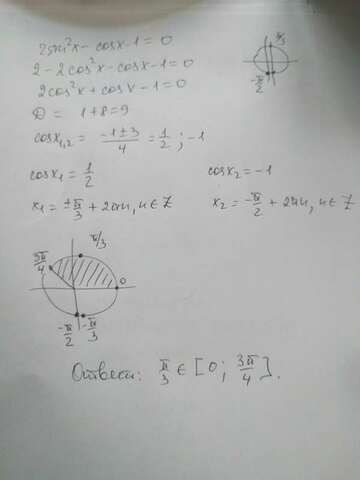 2sin²x - cosx - 1 = 0
2 - 2cos²x - cosx - 1 = 0
2cos²x + cosx - 1 = 0
D = 1 + 8 = 9
cosx₁,₂ = (-1 ± 3)/4 = 1/2 ; -1
cosx₁ = 1/2
cosx₂ = -1
x₁ = ±π/3 + 2πn, n ∈ Z
x₂ = -π/2 + 2πn, n ∈ Z
π/3
-π/2
π/3
3π/4
0
-π/2
-π/3
Ответ: π/3 ∈ [0; 3π/4].